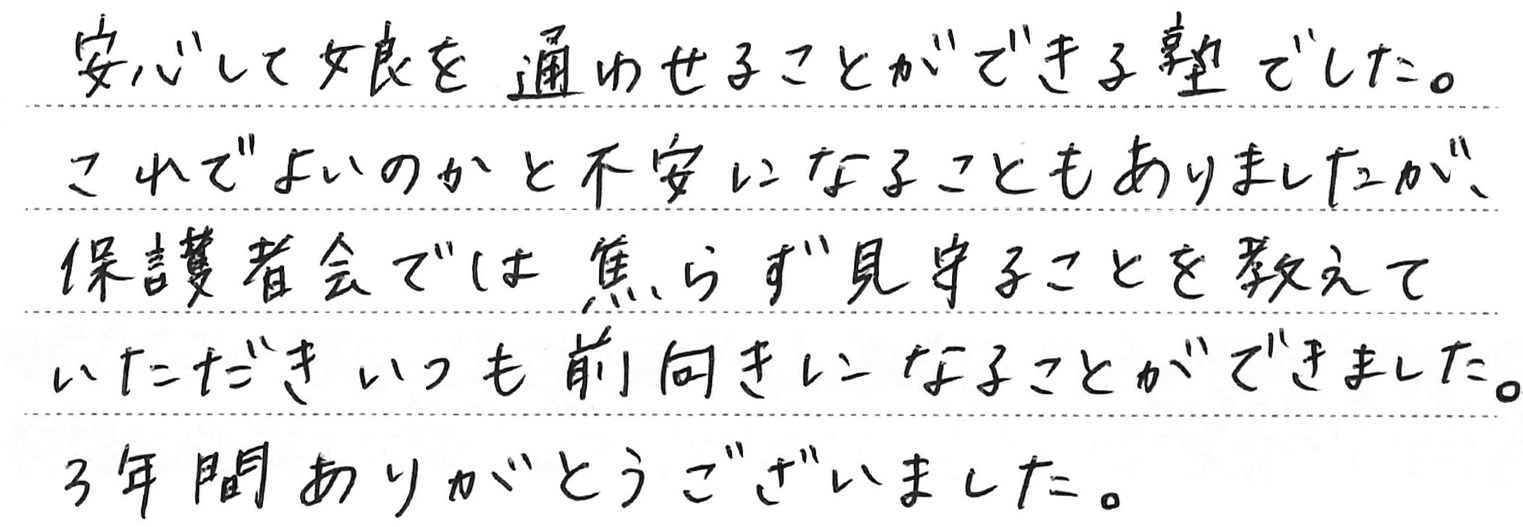 安心して娘を通わせることができる塾でした。
これでよいのかと不安になることもありましたが、
保護者会では焦らず見守ることを教えて
いただきいつも前向きになることができました。
3年間ありがとうございました。